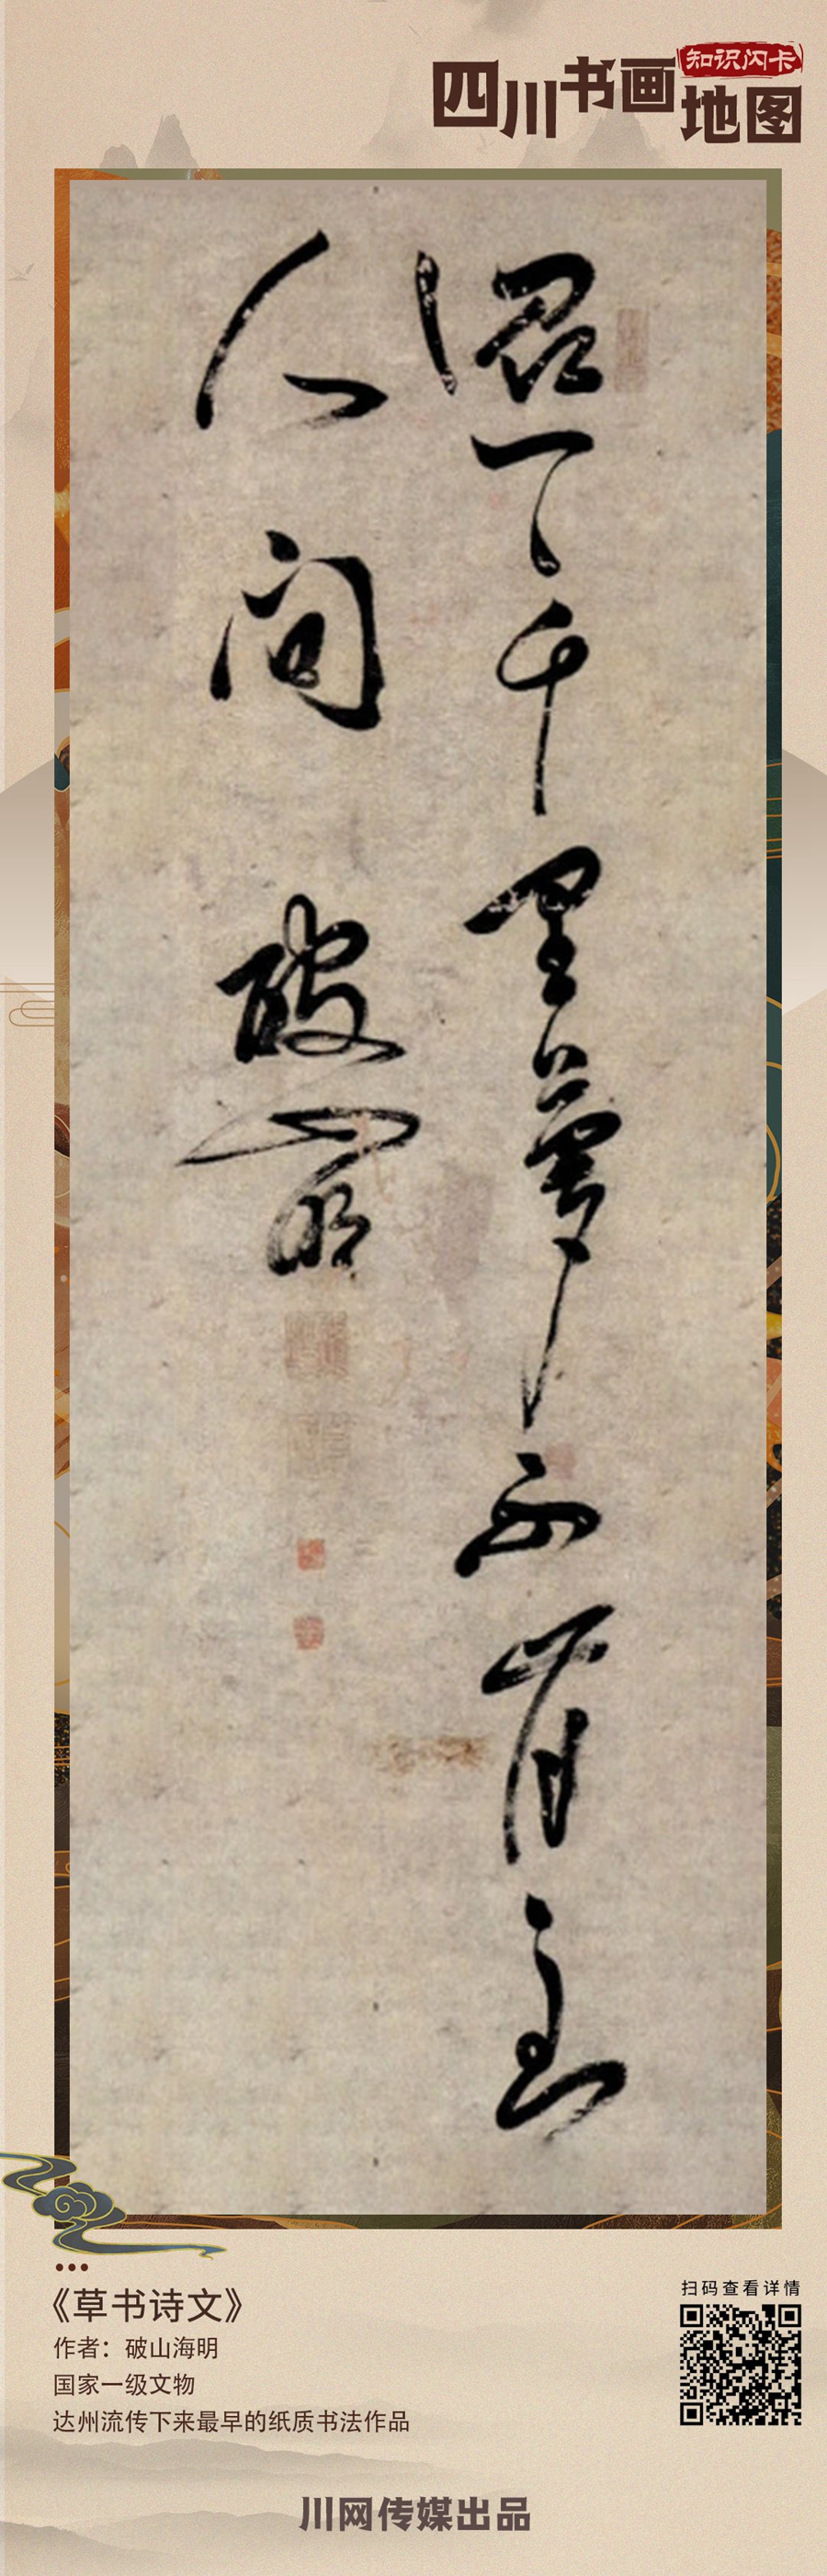 四川书画地图
知识闪卡
千里夢不肯到
人间 破山明
扫码查看详情
《草书诗文》
作者：破山海明
国家一级文物
达州流传下来最早的纸质书法作品
川网传媒出品